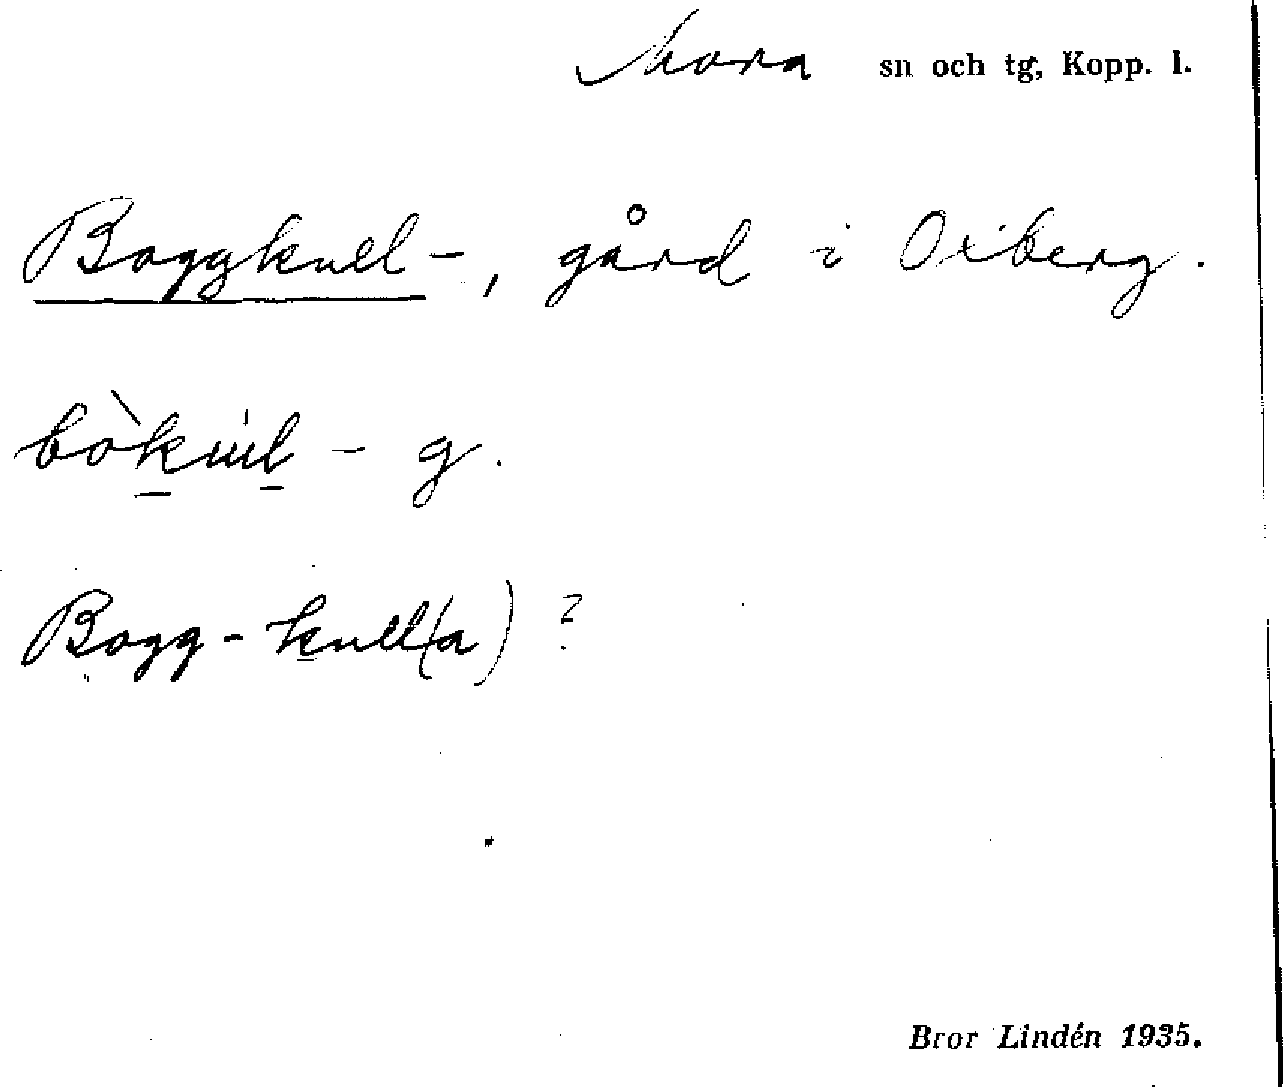 Mora sn och tg, Kopp. l.
Boggkull-, gård i Oxberg.
bòkul - g.
Bogg-kull(a) ?
Bror Lindén 1935.